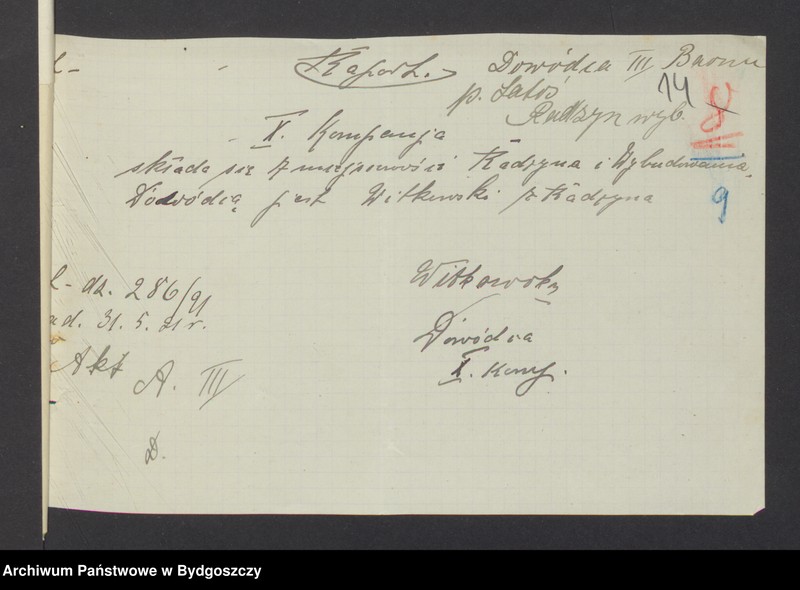 Raport. Dowódca III Baonu
p. Latoś 14
Radzyn wyb.
8
X. Kompanja
składa się z miejscowości Radzyna i Wybudowania,
Dowódcą jest Witkowski z Radzyna
9
Witkowski
Dowódca
X. komp.
L-dz. 286/21
ad. 31. 5. 21 r.
Akt A. III
D.
Archiwum Państwowe w Bydgoszczy